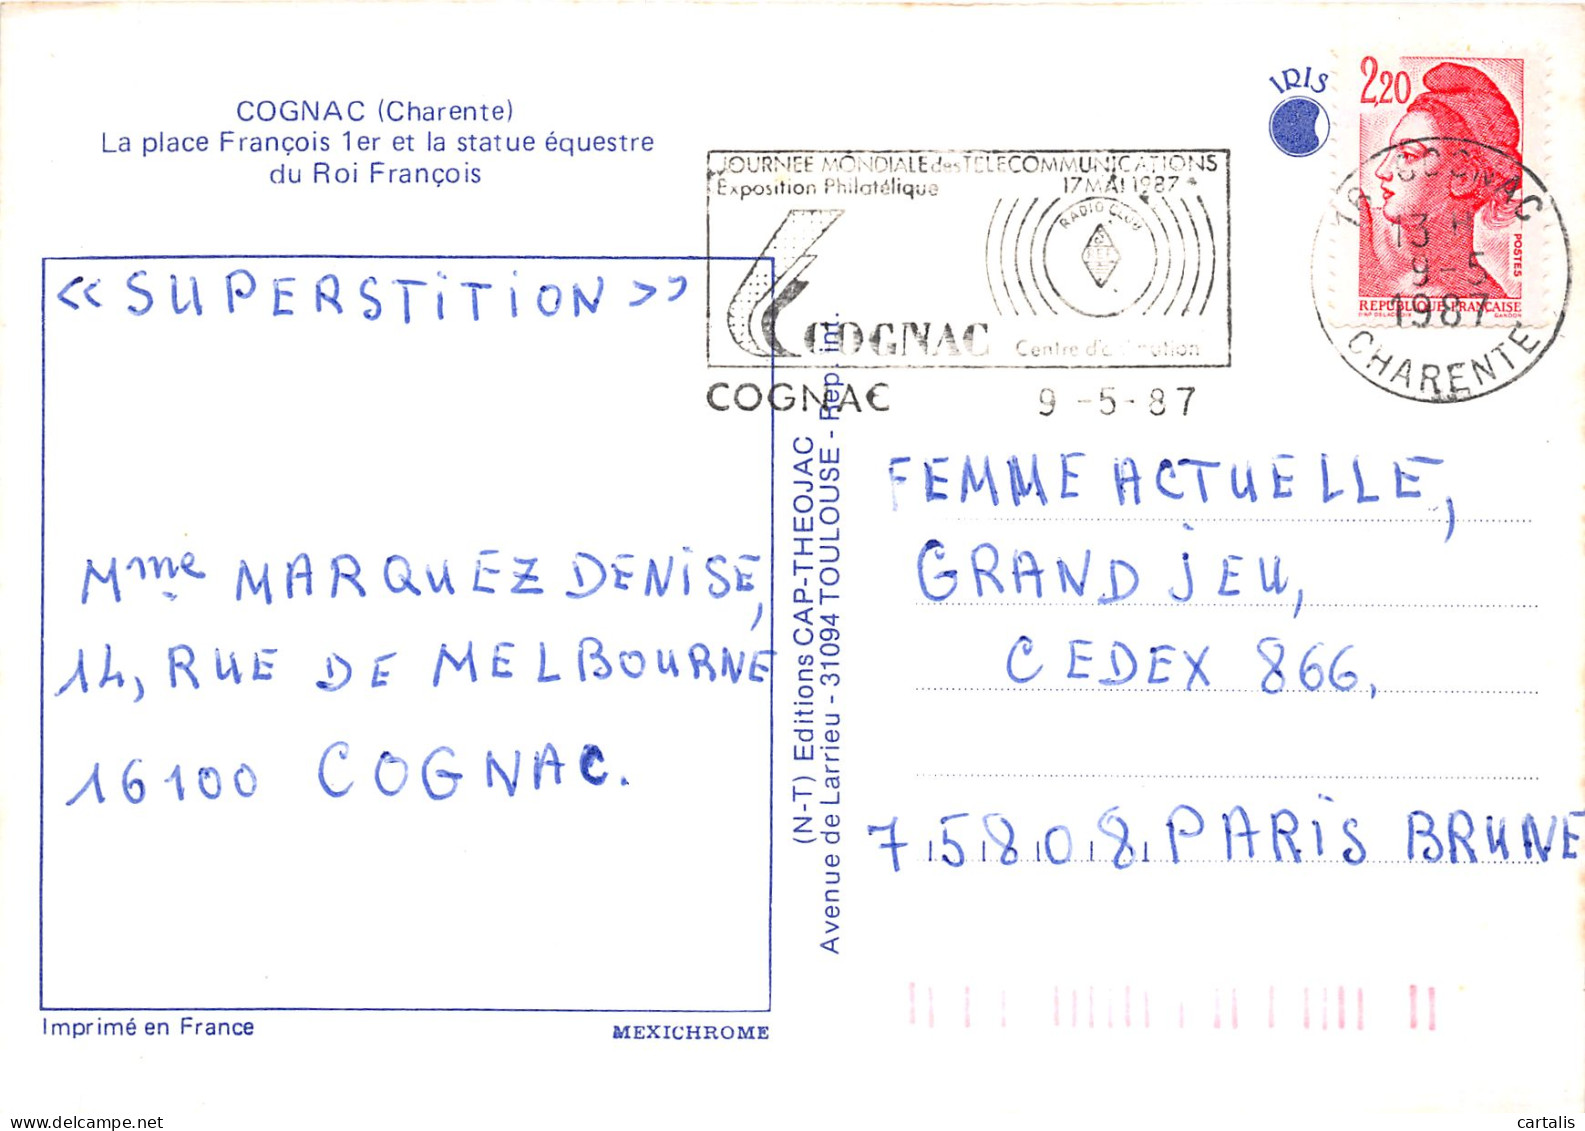 COGNAC (Charente)
La place François 1er et la statue équestre
du Roi François
IRIS
2,20
POSTES
REPUBLIQUE FRANÇAISE
D'AP DELACROIX GANDON
16 COGNAC
13 H
9-5
1987
CHARENTE
JOURNEE MONDIALE des TELECOMMUNICATIONS
Exposition Philatélique 17 MAI 1987
RADIO CLUB
COGNAC
COGNAC 9-5-87
« SUPERSTITION »
Mme MARQUEZ DENISE,
14, RUE DE MELBOURNE
16100 COGNAC.
(N-T) Editions CAP-THEOJAC
Avenue de Larrieu - 31094 TOULOUSE - Rep. int.
FEMME ACTUELLE,
GRAND JEU,
CEDEX 866,
75808 PARIS BRUNE
Imprimé en France
MEXICHROME
delcampe.net
cartalis